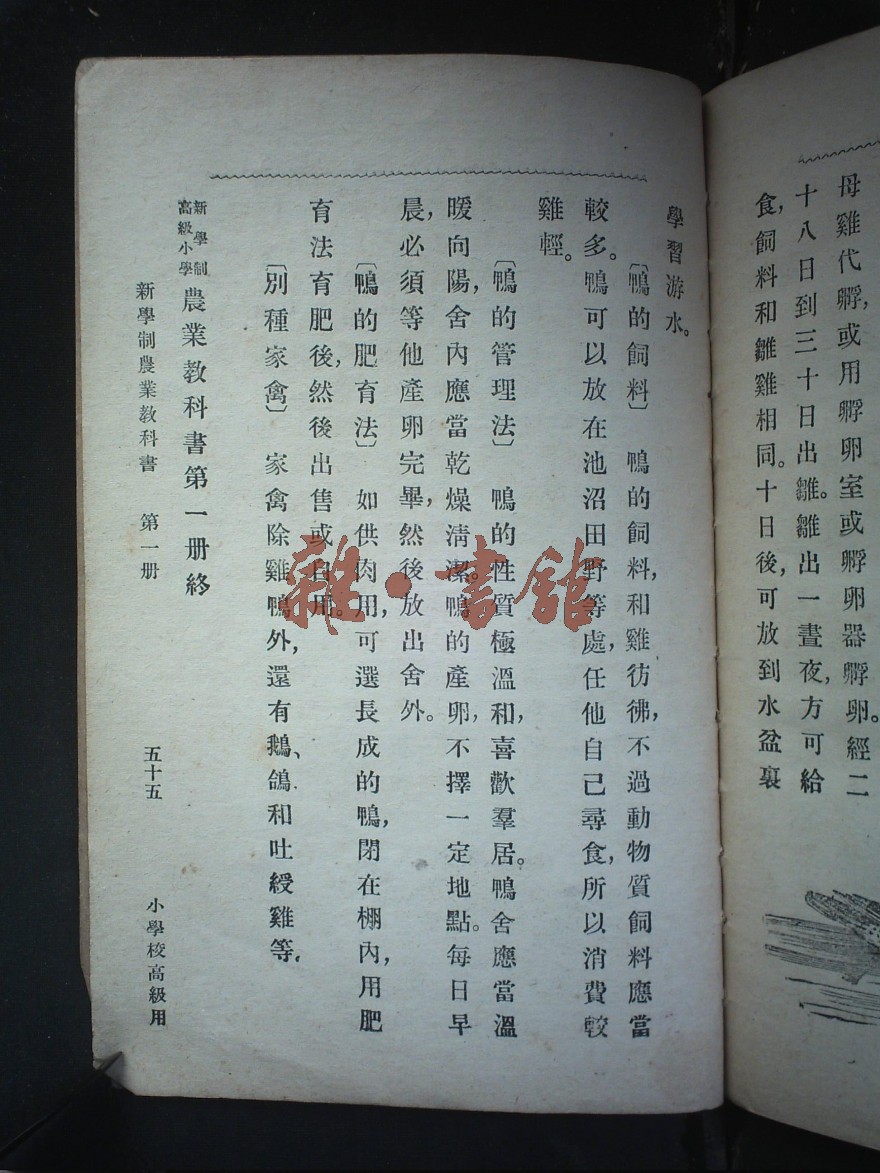 母雞代孵,或用孵卵室或孵卵器孵卵。經二
十八日到三十日出雛。雛出一晝夜,方可給
食,飼料和雛雞相同。十日後,可放到水盆裏
學習游水。
〔鴨的飼料〕 鴨的飼料,和雞彷彿,不過動物質飼料應當
較多。鴨可以放在池沼田野等處,任他自己尋食,所以消費較
雞輕。
〔鴨的管理法〕 鴨的性質極溫和,喜歡羣居。鴨舍應當溫
暖向陽,舍內應當乾燥清潔。鴨的產卵,不擇一定地點。每日早
晨,必須等他產卵完畢,然後放出舍外。
〔鴨的肥育法〕 如供肉用,可選長成的鴨,閉在棚內,用肥
育法育肥後,然後出售或自用。
〔別種家禽〕 家禽除雞鴨外,還有鵝、鴿和吐綬雞等。
新學制
高級小學
農業教科書第一册終
新學制農業教科書 第一册 五十五 小學校高級用
雜·書館